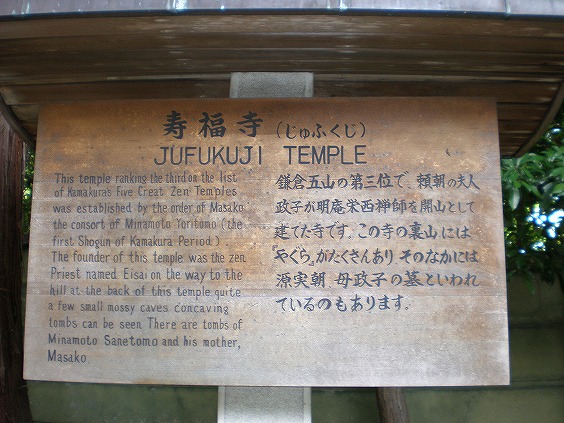 寿福寺(じゅふくじ)
JUFUKUJI TEMPLE
This temple ranking the third on the list
of Kamakura's Five Great Zen Temples
was established by the order of Masako
the consort of Minamoto Yoritomo (the
first Shogun of Kamakura Period).
The founder of this temple was the zen
Priest named Eisai on the way to the
hill at the back of this temple quite
a few small mossy caves concaving
tombs can be seen There are tombs of
Minamoto Sanetomo and his mother,
Masako
鎌倉五山の第三位で、頼朝の夫人
政子が明庵栄西禅師を開山として
建てた寺です。この寺の裏山には
『やぐら』がたくさんあり そのなかには
源実朝、母政子の墓といわれ
ているのもあります。